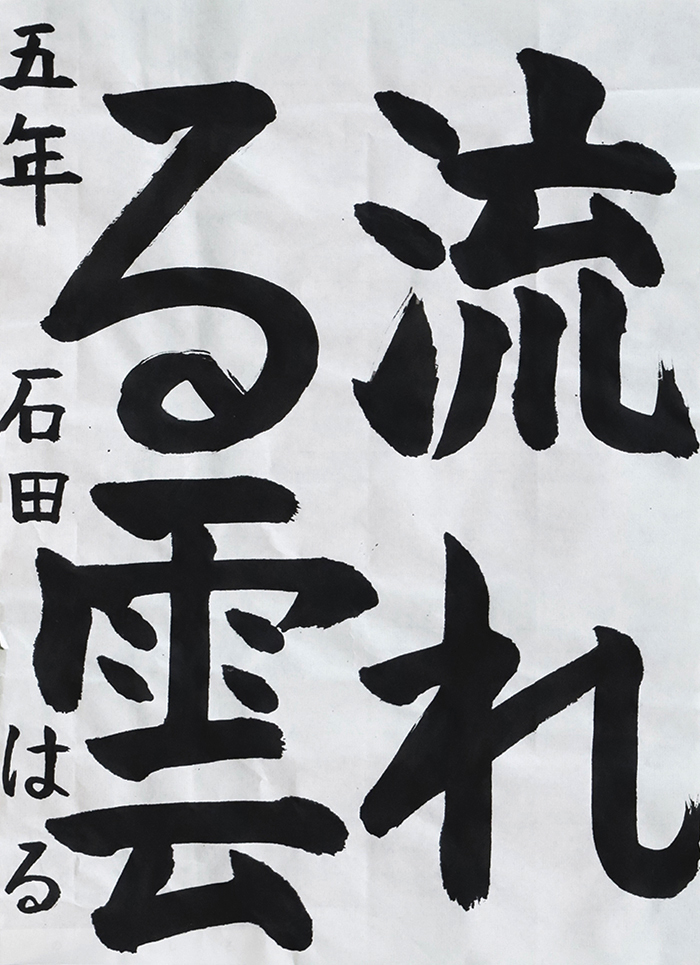 流れ
る雲
五年 石田 はる